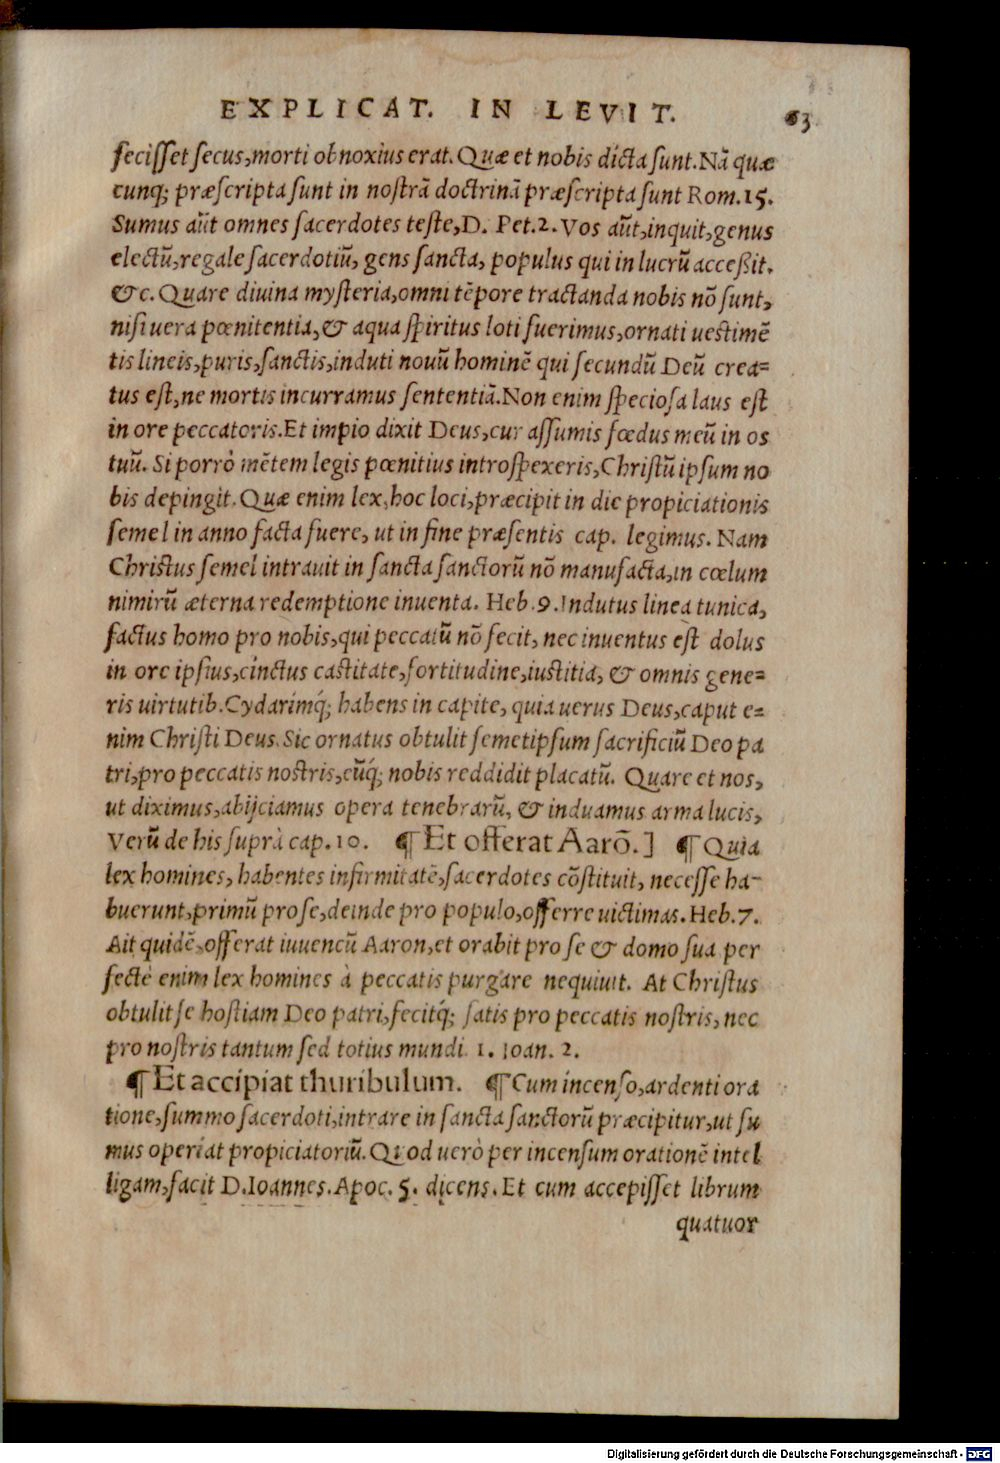 EXPLICAT. IN LEVIT. 63
fecisset secus, morti obnoxius erat. Quæ et nobis dicta sunt. Nā quæ
cunq; præscripta sunt in nostrā doctrinā præscripta sunt Rom. 15.
Sumus aūt omnes sacerdotes teste, D. Pet. 2. Vos aūt, inquit, genus
electū, regale sacerdotiū, gens sancta, populus qui in lucrū acceßit.
&c. Quare diuina mysteria, omni tēpore tractanda nobis nō sunt,
nisi uera pœnitentia, & aqua spiritus loti fuerimus, ornati uestimē
tis lineis, puris, sanctis, induti nouū hominē qui secundū Deū crea=
tus est, ne mortis incurramus sententiā. Non enim speciosa laus est
in ore peccatoris. Et impio dixit Deus, cur assumis fœdus meū in os
tuū. Si porrò mētem legis pœnitius introspexeris, Christū ipsum no
bis depingit. Quæ enim lex, hoc loci, præcipit in die propiciationis
semel in anno facta fuere, ut in fine præsentis cap. legimus. Nam
Christus semel intrauit in sancta sanctorū nō manufacta, in cœlum
nimirū æterna redemptione inuenta. Heb. 9. Indutus linea tunica,
factus homo pro nobis, qui peccatū nō fecit, nec inuentus est dolus
in ore ipsius, cinctus castitate, fortitudine, iustitia, & omnis gene=
ris uirtutib. Cydarimq́; habens in capite, quia uerus Deus, caput e=
nim Christi Deus. Sic ornatus obtulit semetipsum sacrificiū Deo pa
tri, pro peccatis nostris, eūq́; nobis reddidit placatū. Quare et nos,
ut diximus, abijciamus opera tenebrarū, & induamus arma lucis,
Verū de his suprà cap. 10. ¶ Et offerat Aarō.] ¶ Quia
lex homines, habentes infirmitatē, sacerdotes cōstituit, necesse ha-
buerunt, primū pro se, deinde pro populo, offerre uictimas. Heb. 7.
Ait quidē, offerat iuuencū Aaron, et orabit pro se & domo sua per
fectè enim lex homines à peccatis purgare nequiuit. At Christus
obtulit se hostiam Deo patri, fecitq́; satis pro peccatis nostris, nec
pro nostris tantum sed totius mundi. 1. Ioan. 2.
¶ Et accipiat thuribulum. ¶ Cum incenso, ardenti ora
tione, summo sacerdoti, intrare in sancta sanctorū præcipitur, ut fu
mus operiat propiciatoriū. Quod uerò per incensum orationē intel
ligam, facit D. Ioannes. Apoc. 5. dicens. Et cum accepisset librum
quatuor
Digitalisierung gefördert durch die Deutsche Forschungsgemeinschaft - DFG